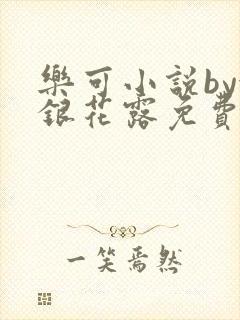 樂可小說by
銀花露免費
一笑焉然